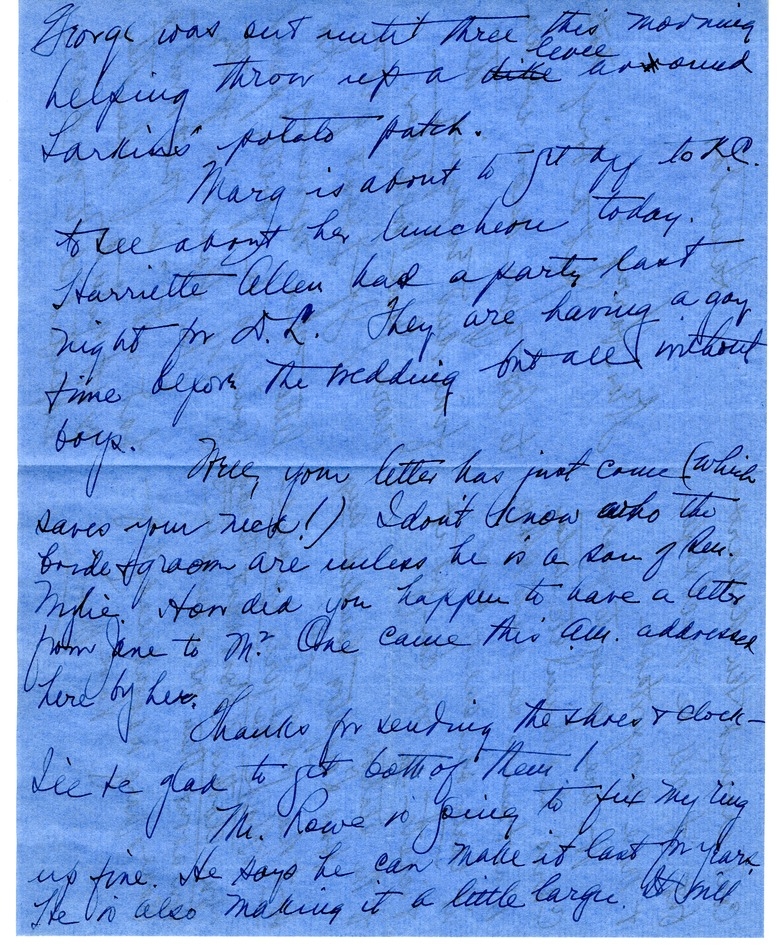 George was out until three this morning
helping throw up a dike levee around
Larkins' potato patch.
Marg is about to get off to K.C.
to see about her luncheon today.
Harriette Allen had a party last
night for D.L. They are having a gay
time before the wedding but all without
boys.
Well, your letter has just come (which
saves your neck!) I don't know who the
bride & groom are unless he is a son of Sen.
Wylie. How did you happen to have a letter
from Jane to M? One came this a.m. addressed
here by her.
Thanks for sending the shoes & clock—
I'll be glad to get both of them!
Mr. Rowe is going to fix my ring
up fine. He says he can make it last for years.
He is also making it a little larger. It will